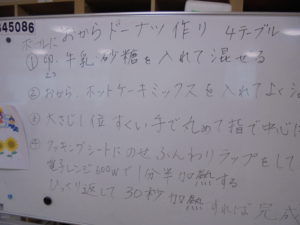 45086
おからドーナツ作り 4テーブル
ボールに
① 卵、牛乳 砂糖を入れて混ぜる
② おから、ホットケーキミックスを入れてよく
③ 大さじ1位 すくい手で丸めて指で中心に
④ クッキングシートにのせ ふんわりラップをして
電子レンジ600Wで1分半加熱する
ひっくり返して30秒加熱すれば完成